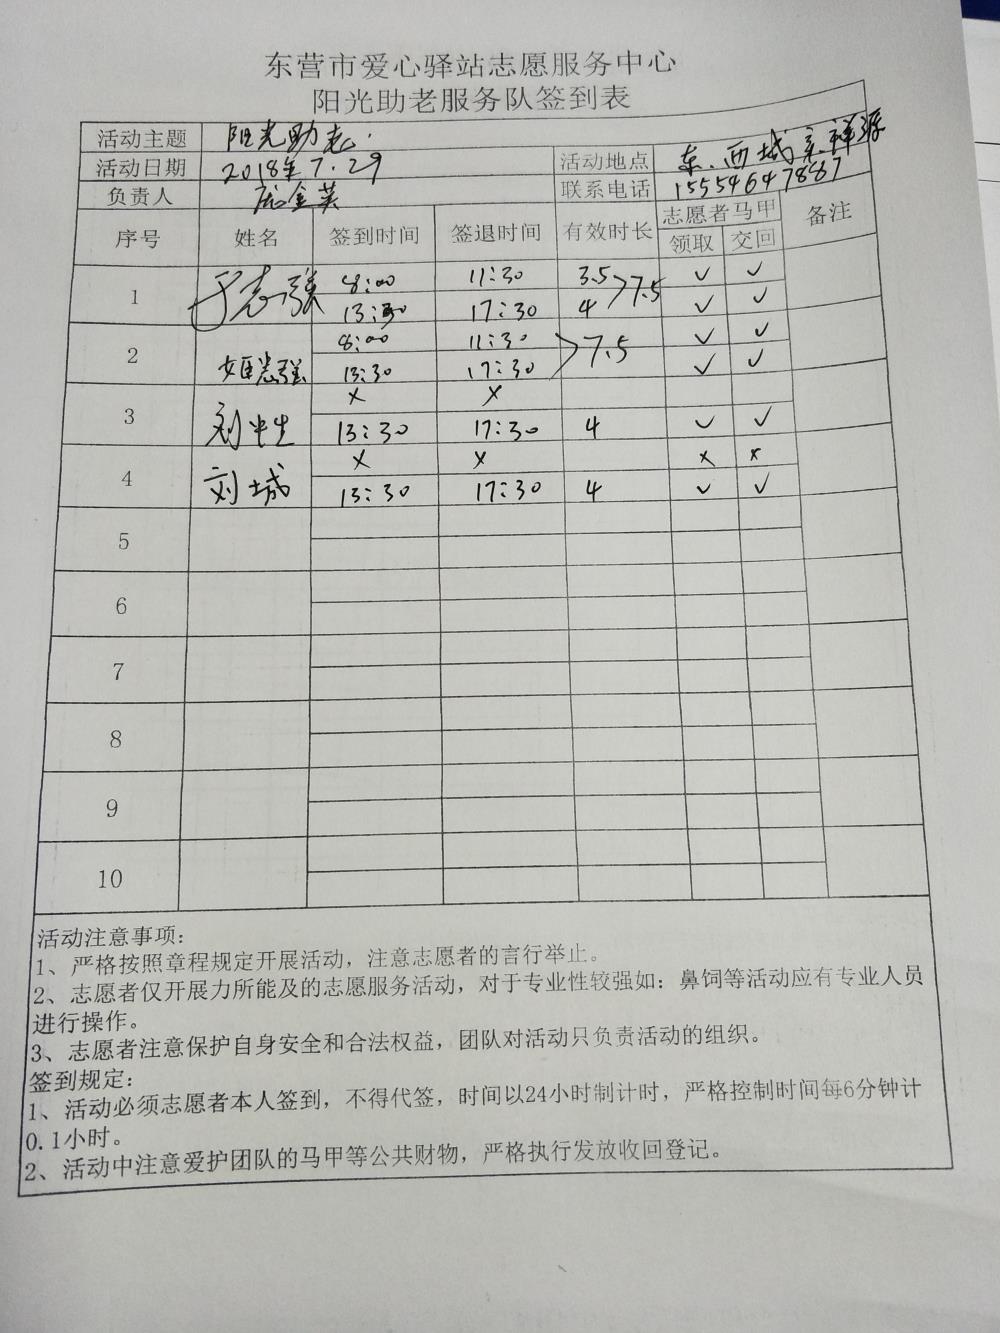 东营市爱心驿站志愿服务中心
阳光助老服务队签到表
活动主题 阳光助老.
活动日期 2018年7.29 活动地点 东.西城
负责人 金英 联系电话 15554647887
序号 姓名 签到时间 签退时间 有效时长 志愿者马甲 备注
领取 交回
1 于志强 8:00 11:30 3.5 >7.5 ✓ ✓
13:30 17:30 4 ✓ ✓
2 志强 8:00 11:30 >7.5 ✓ ✓
13:30 17:30 ✓ ✓
3 刘 × ×
13:30 17:30 4 ✓ ✓
4 刘城 × × × ×
13:30 17:30 4 ✓ ✓
5
6
7
8
9
10
活动注意事项:
1、严格按照章程规定开展活动，注意志愿者的言行举止。
2、志愿者仅开展力所能及的志愿服务活动，对于专业性较强如：鼻饲等活动应有专业人员
进行操作。
3、志愿者注意保护自身安全和合法权益，团队对活动只负责活动的组织。
签到规定:
1、活动必须志愿者本人签到，不得代签，时间以24小时制计时，严格控制时间每6分钟计
0.1小时。
2、活动中注意爱护团队的马甲等公共财物，严格执行发放收回登记。